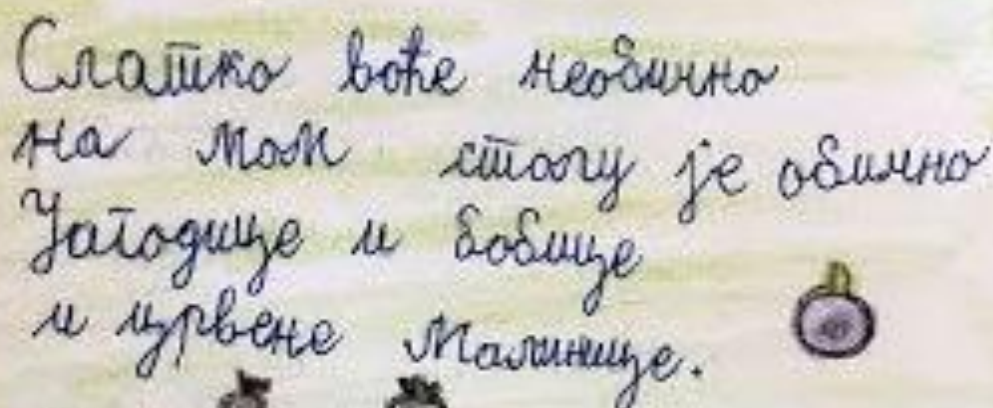 Слатко воће необично
на мом столу је обично
Јагодице и бобице
и црвене малинице.